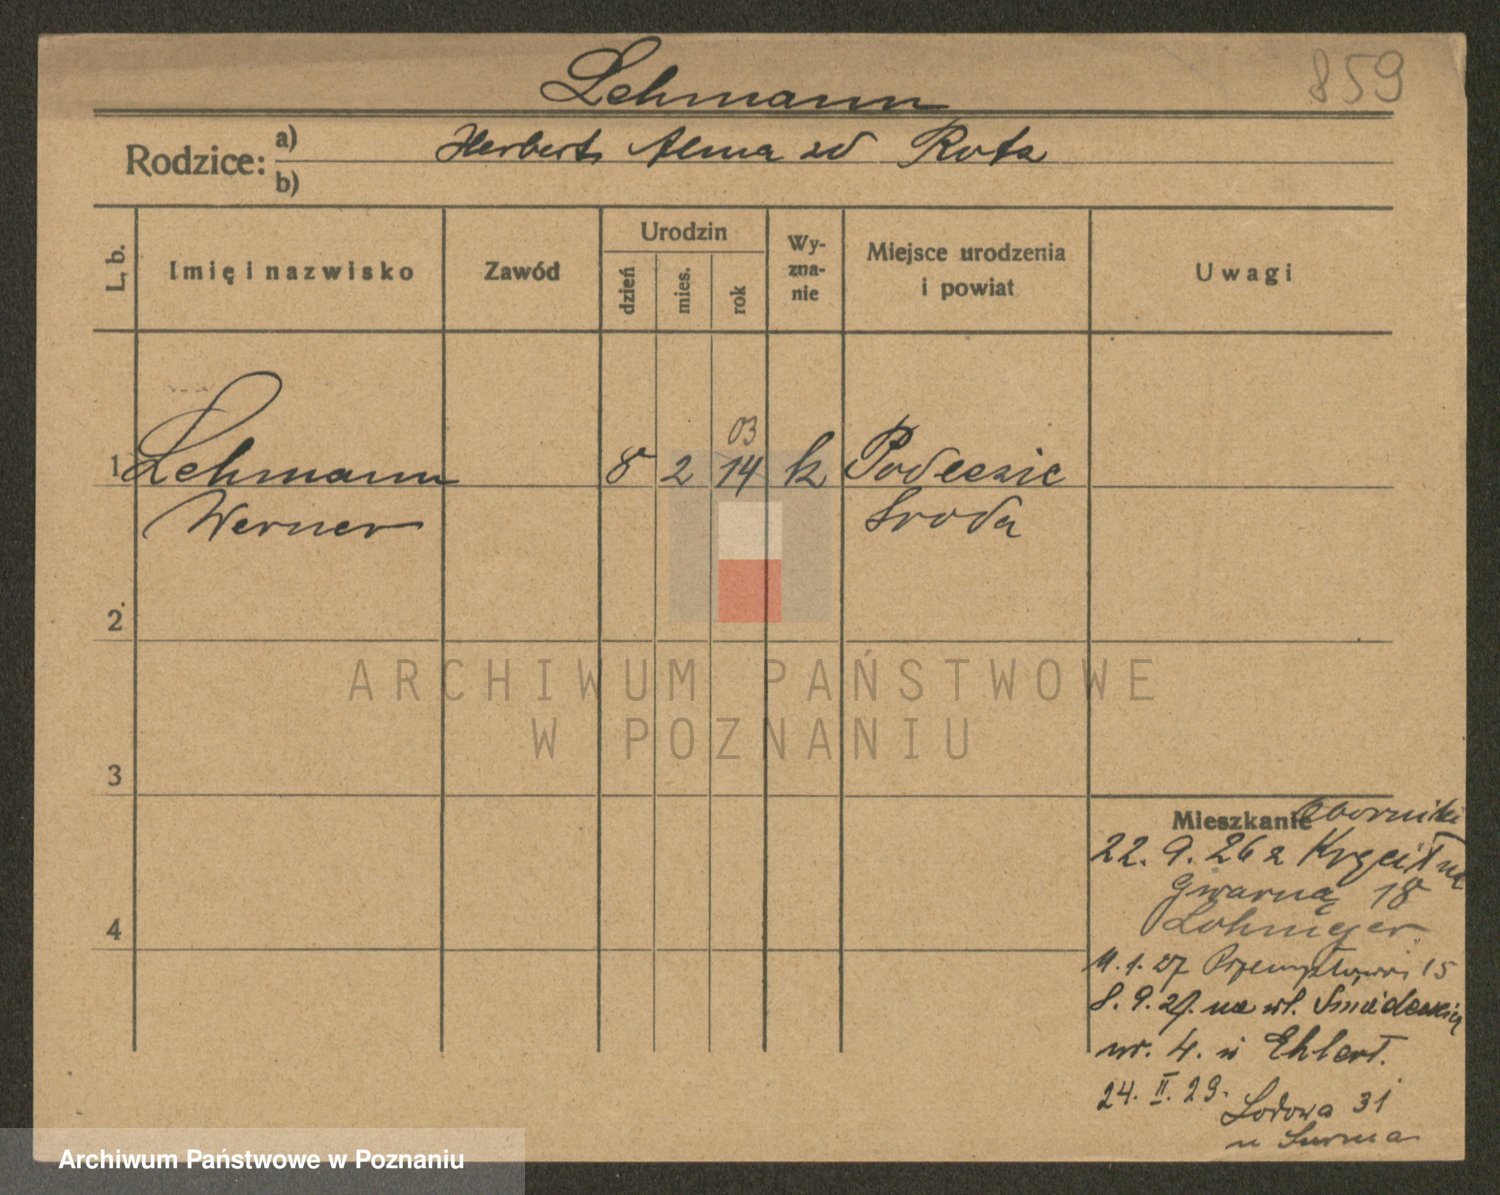 859
Lehmann
Rodzice: a) Herbert Alma zd Rota
b)
L. b.
Imię i nazwisko
Zawód
Urodzin
dzień
mies.
rok
Wy-
zna-
nie
Miejsce urodzenia
i powiat
Uwagi
03
1 Lehmann 8 2 14 k
Werner Środa
2
3
4
Mieszkanie Oborniki
22. 9. 26 z
Gwarną 18
11. 1. 27 15
8. 9. 27. na ul. Śniadeckich
nr. 4. Ehlert.
24. II. 29. Lodowa 31
ARCHIWUM PAŃSTWOWE
W POZNANIU
Archiwum Państwowe w Poznaniu